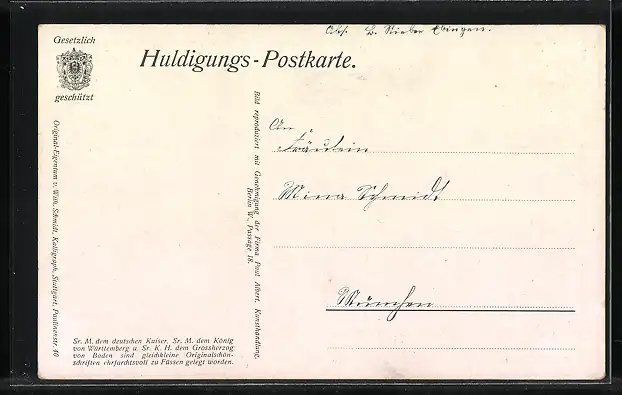 Abs. B. Rieber Ebingen.
Gesetzlich
geschützt
Huldigungs-Postkarte.
Original-Eigentum v. Wilh. Schmidt, Kalligraph, Stuttgart, Paulinenstr. 40
Bild reproduziert mit Genehmigung der Firma Paul Albert, Kunsthandlung,
Berlin W., Passage 18.
An
Fräulein
Mina Schmidt
München
Sr. M. dem deutschen Kaiser, Sr. M. dem König
von Württemberg u. Sr. K. H. dem Grossherzog
von Baden sind gleichkleine Originalschön-
schriften ehrfurchtsvoll zu Füssen gelegt worden.